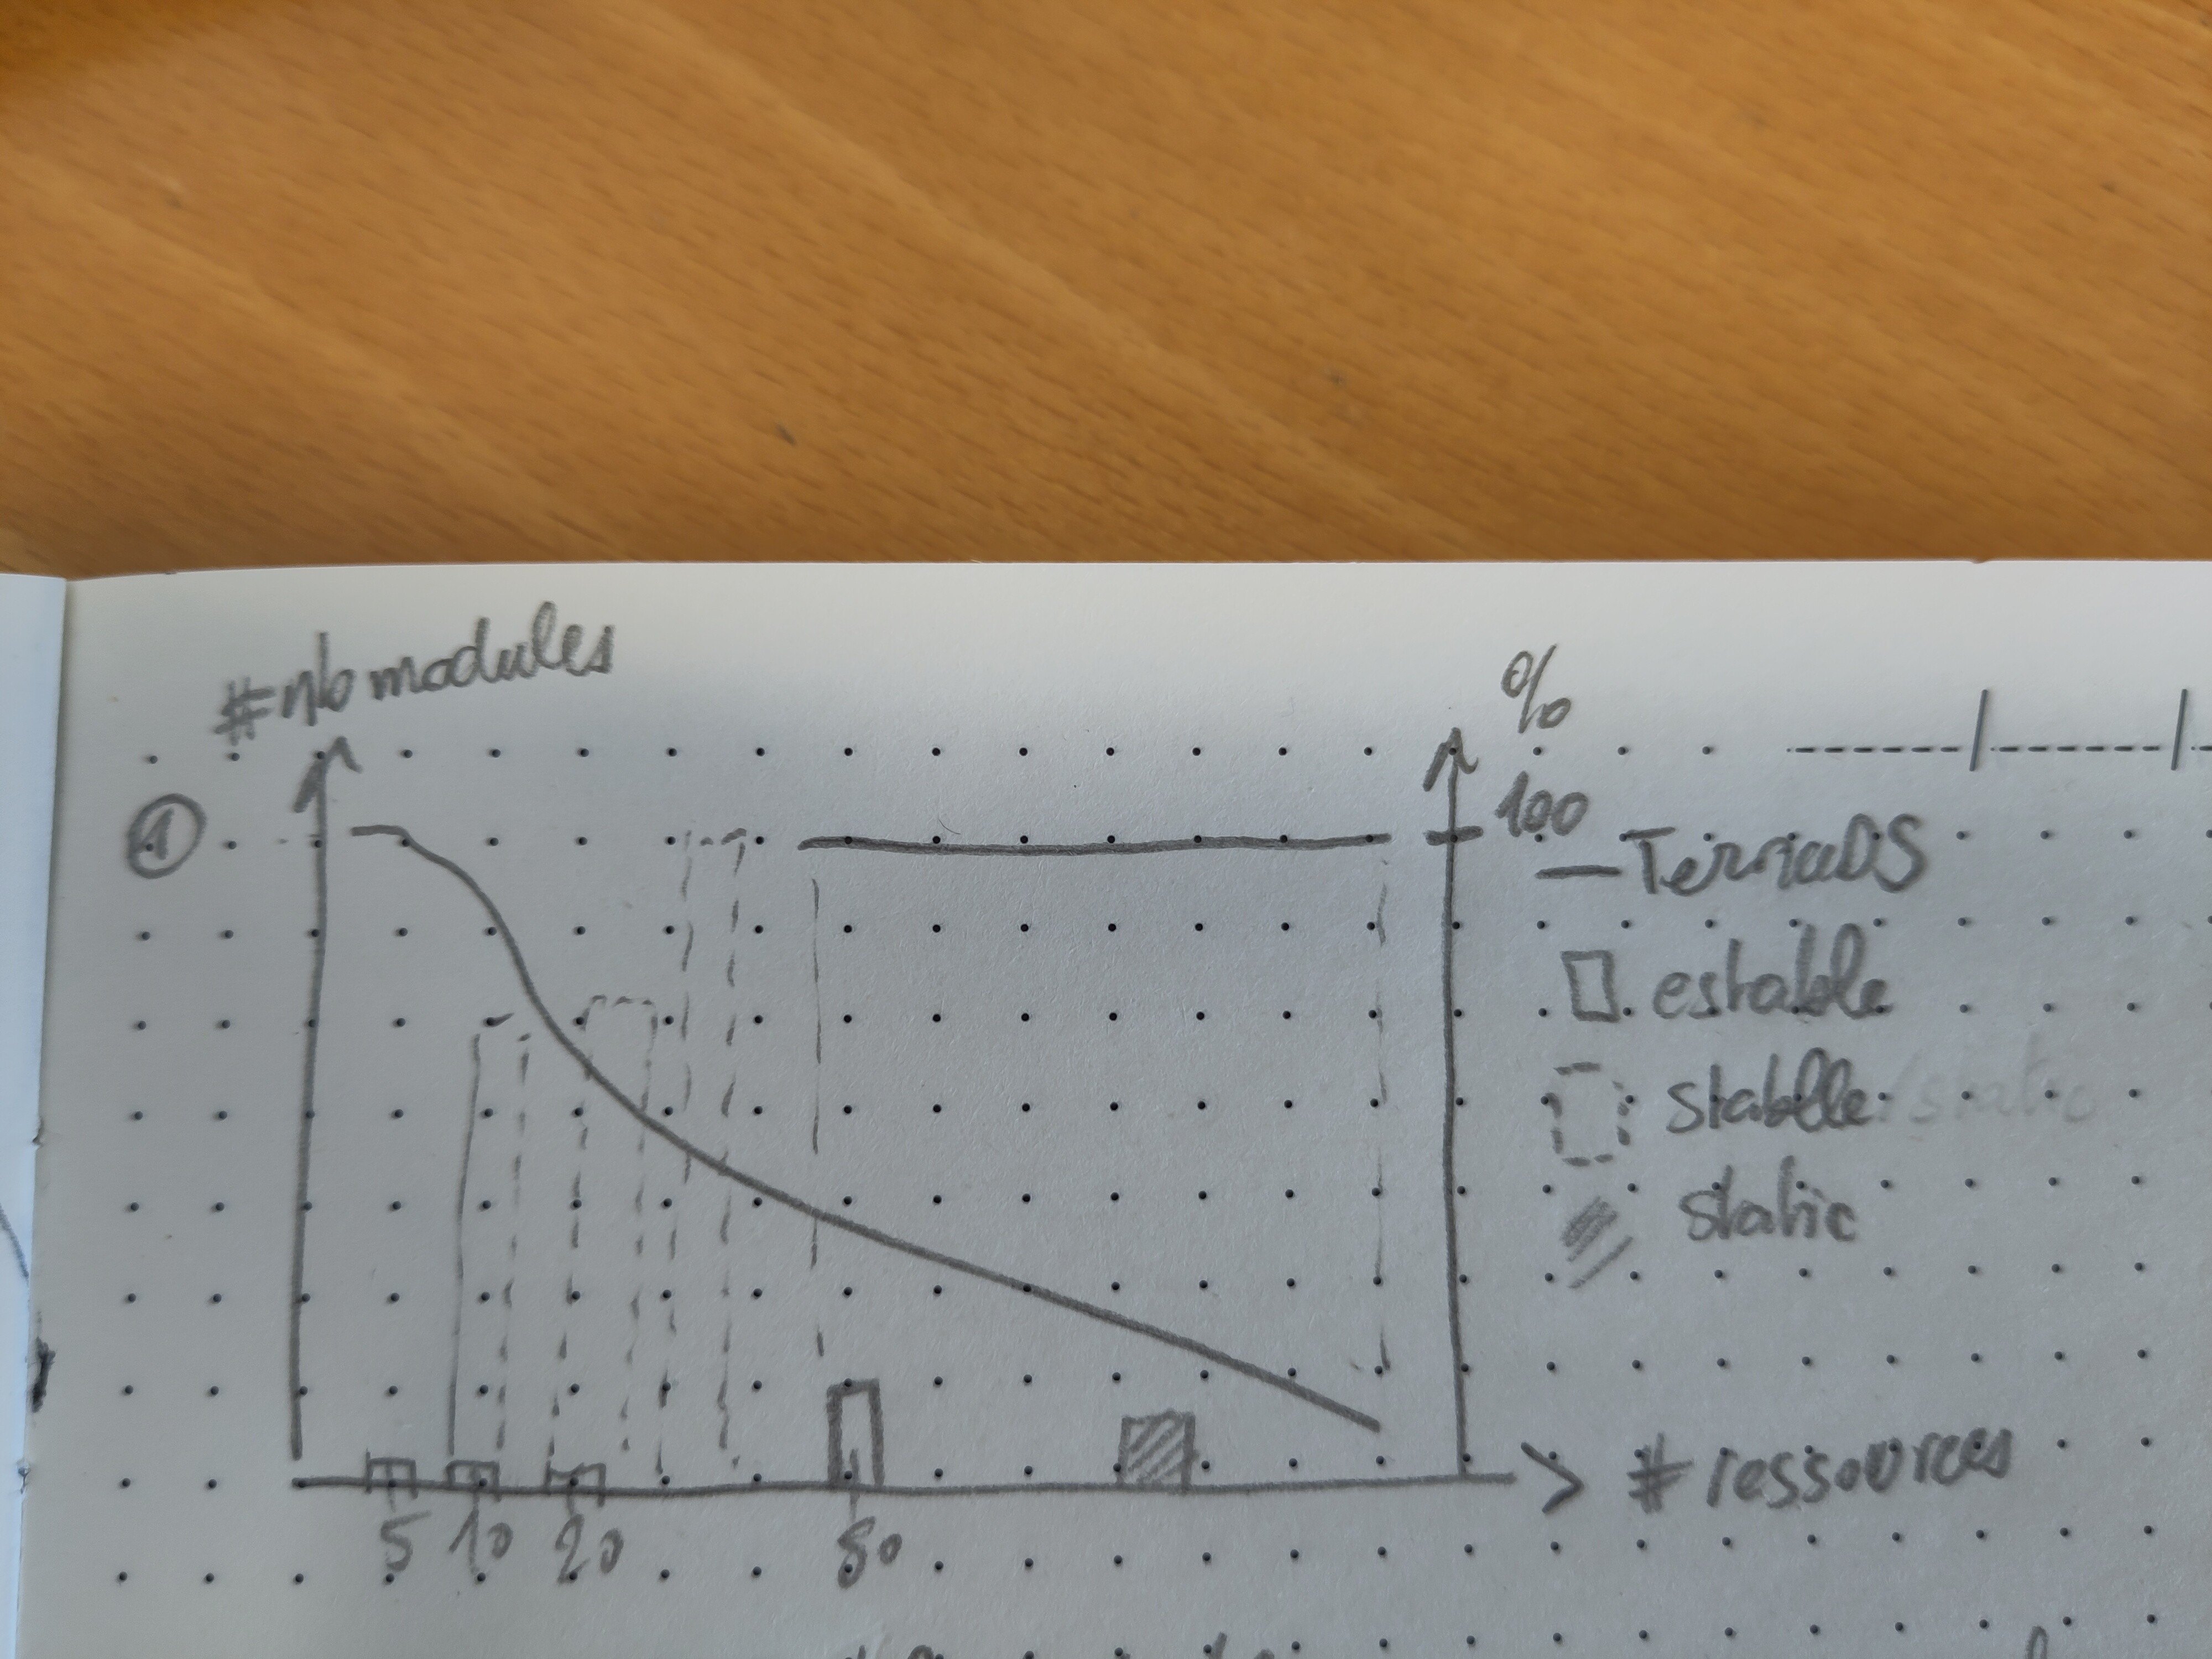 #nb modules
%
①
100
— TerraDS
estable
stablle /static
static
# ressources
5 10 20 80